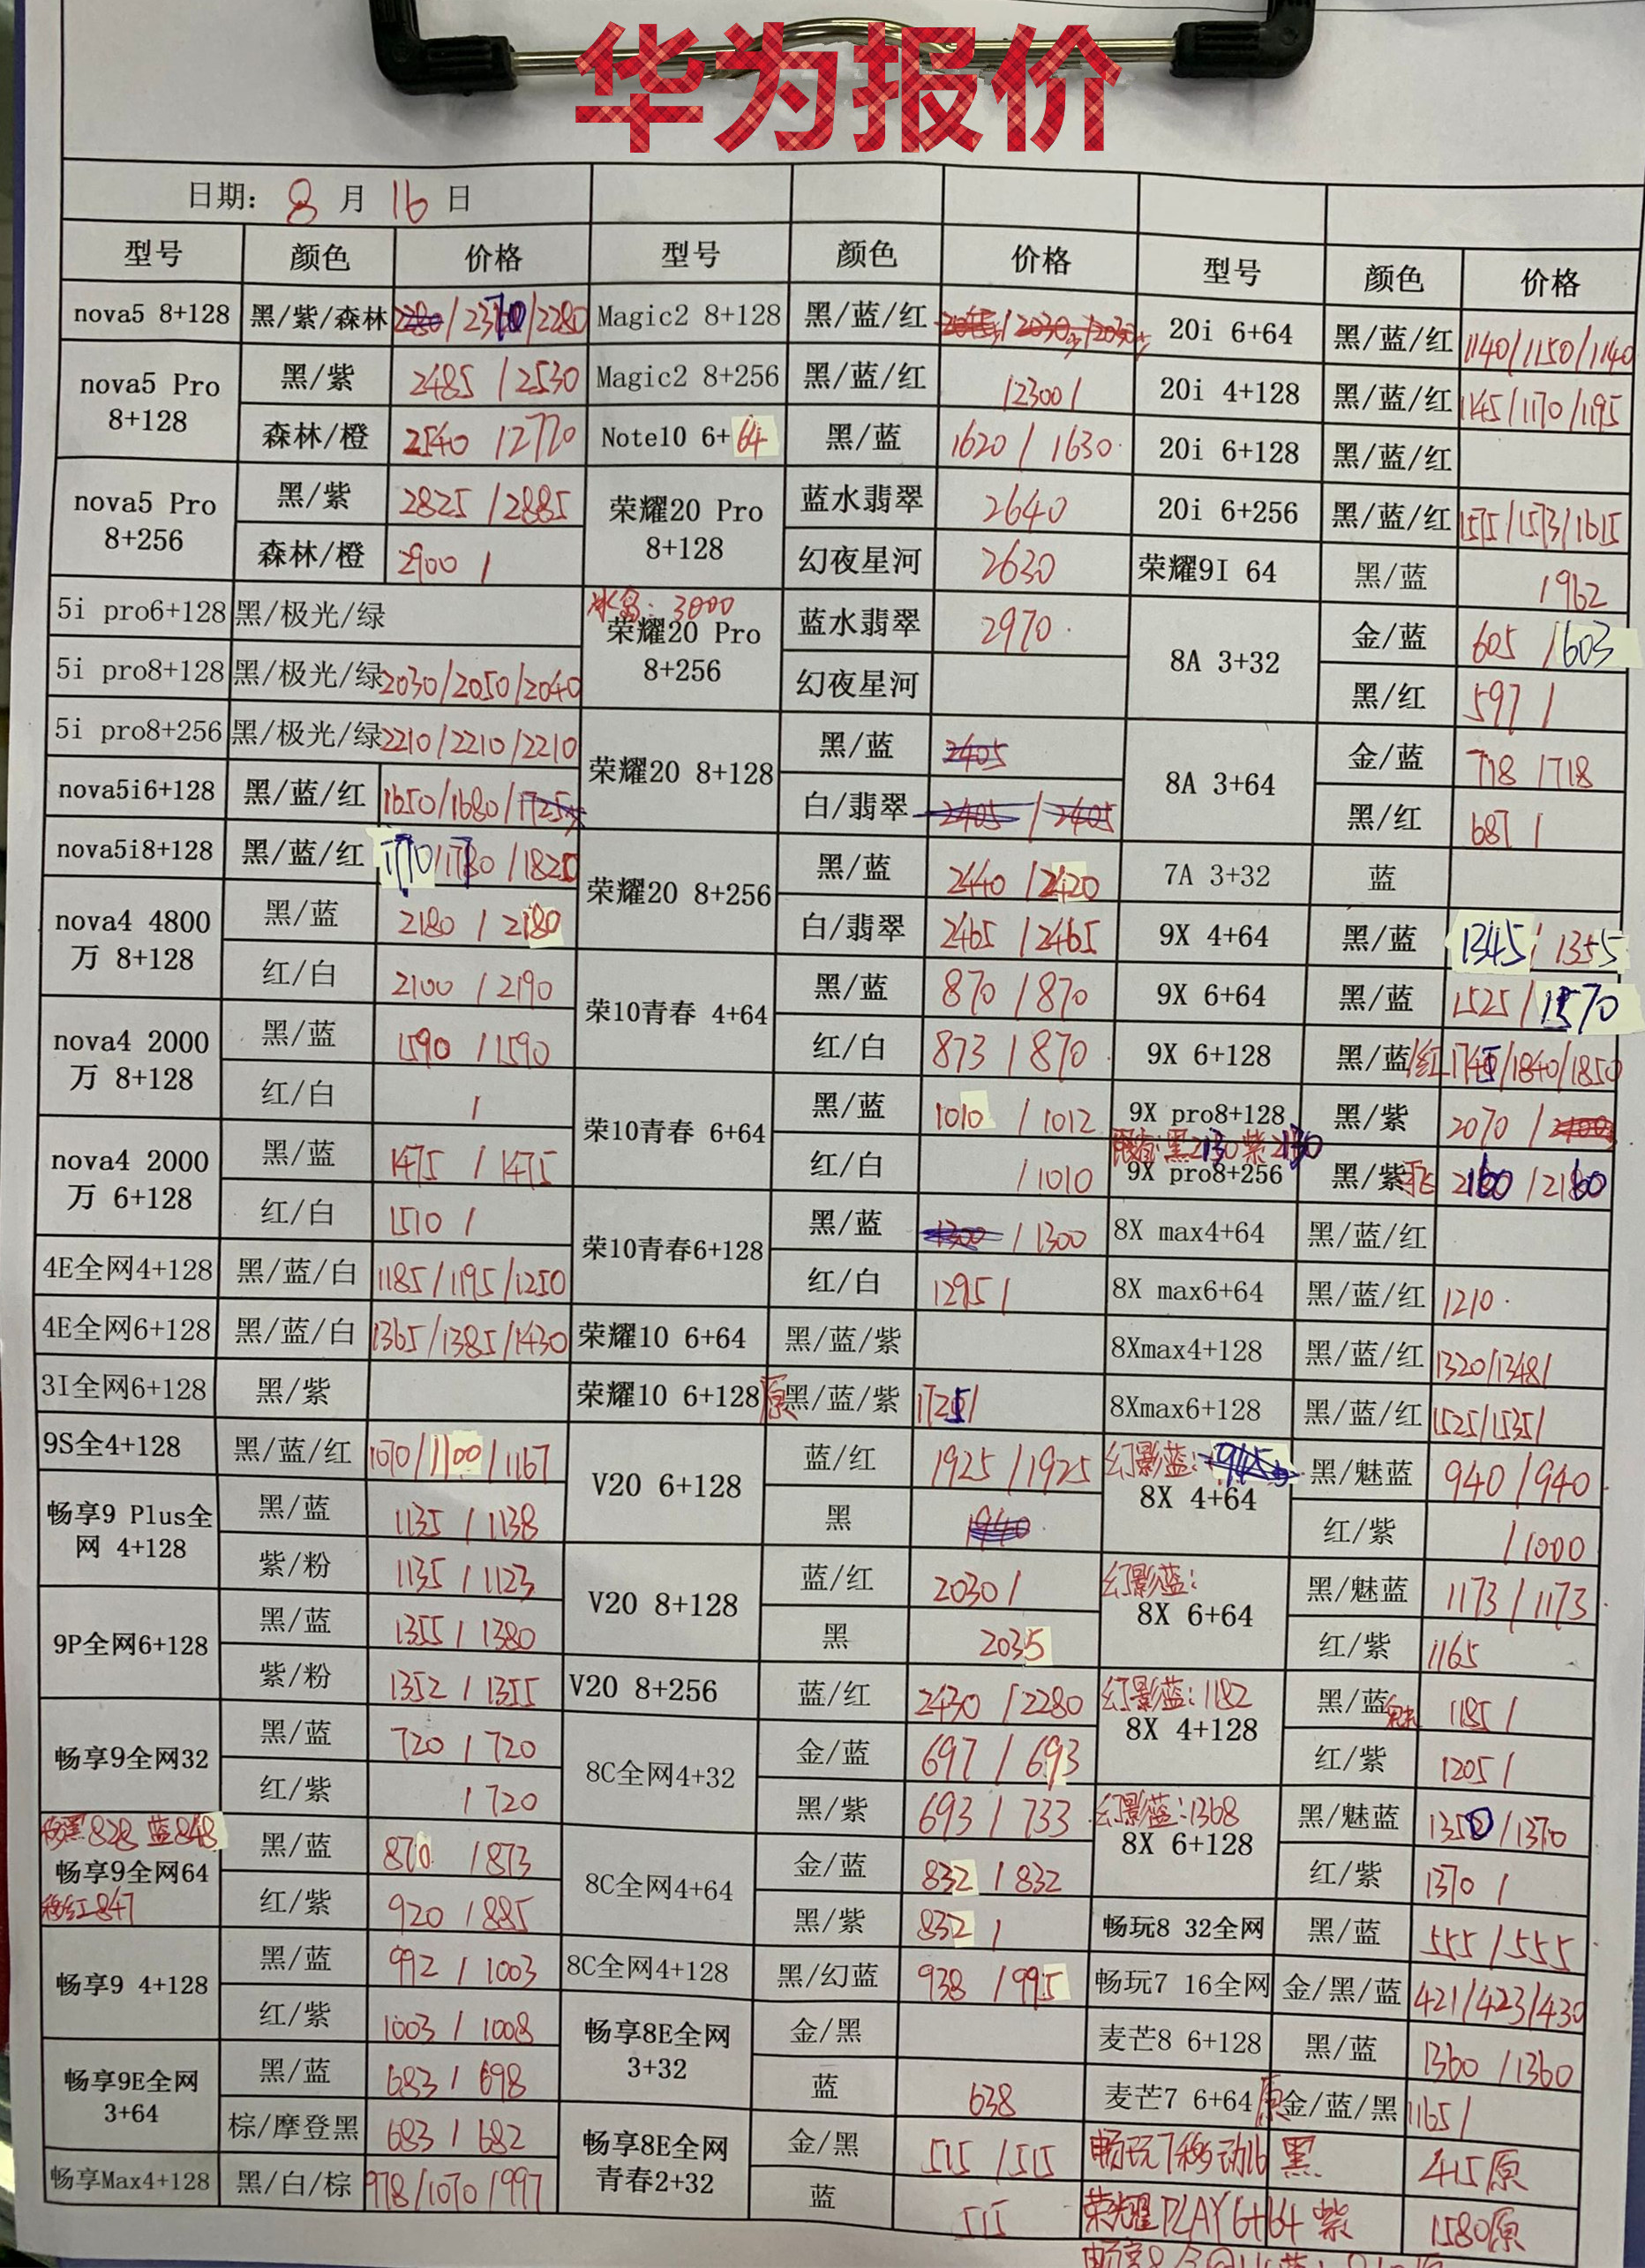 华为报价
日期: 8 月 16 日
型号 颜色 价格 型号 颜色 价格 型号 颜色 价格
nova5 8+128 黑/紫/森林 /2280 Magic2 8+128 黑/蓝/红 20i 6+64 黑/蓝/红 1140/1150/1140
nova5 Pro 8+128 黑/紫 2485 /2530 Magic2 8+256 黑/蓝/红 /2300/ 20i 4+128 黑/蓝/红 1145/1170/1195
森林/橙 2540 /2770 Note10 6+64 黑/蓝 1620 / 1630 20i 6+128 黑/蓝/红
nova5 Pro 8+256 黑/紫 2825 /2885 荣耀20 Pro 8+128 蓝水翡翠 2640 20i 6+256 黑/蓝/红 1575/1573/1615
森林/橙 2900 / 幻夜星河 2630 荣耀9I 64 黑/蓝 /962
5i pro6+128 黑/极光/绿 冰岛: 3000 荣耀20 Pro 8+256 蓝水翡翠 2970 8A 3+32 金/蓝 605 /603
5i pro8+128 黑/极光/绿 2030/2050/2040 幻夜星河 黑/红 597 /
5i pro8+256 黑/极光/绿 2210/2210/2210 荣耀20 8+128 黑/蓝 2405 8A 3+64 金/蓝 718 /718
nova5i6+128 黑/蓝/红 1650/1680/1725 白/翡翠 2405 / 2405 黑/红 687 /
nova5i8+128 黑/蓝/红 1770/1780/1820 荣耀20 8+256 黑/蓝 2440 /2420 7A 3+32 蓝
nova4 4800万 8+128 黑/蓝 2180 / 2180 白/翡翠 2465 /2465 9X 4+64 黑/蓝 1345/ 1355
红/白 2100 / 2190 荣10青春 4+64 黑/蓝 870 /870 9X 6+64 黑/蓝 1525/ 1570
nova4 2000万 8+128 黑/蓝 1590 / 1590 红/白 873 / 870 9X 6+128 黑/蓝/红 1745/1840/1850
红/白 / 荣10青春 6+64 黑/蓝 1010 / 1012 9X pro8+128 黑/紫 2070 /
nova4 2000万 6+128 黑/蓝 1475 / 1475 红/白 / 1010 黑2130 紫2130 9X pro8+256 黑/紫 2160 /2160
红/白 1510 / 荣10青春6+128 黑/蓝 1300 / 1300 8X max4+64 黑/蓝/红
4E全网4+128 黑/蓝/白 1185/1195/1250 红/白 1295/ 8X max6+64 黑/蓝/红 1210
4E全网6+128 黑/蓝/白 1365/1385/1430 荣耀10 6+64 黑/蓝/紫 8Xmax4+128 黑/蓝/红 1320/1348/
3I全网6+128 黑/紫 荣耀10 6+128 原黑/蓝/紫 1725/ 8Xmax6+128 黑/蓝/红 1525/1535/
9S全4+128 黑/蓝/红 1070/1100/1167 V20 6+128 蓝/红 1925 /1925 幻影蓝: 945 8X 4+64 黑/魅蓝 940 /940
畅享9 Plus全网 4+128 黑/蓝 1135 / 1138 黑 1940 红/紫 /1000
紫/粉 1135 / 1123 V20 8+128 蓝/红 2030 / 幻影蓝: 8X 6+64 黑/魅蓝 1173 /1173
9P全网6+128 黑/蓝 1355 / 1380 黑 2035 红/紫 1165
紫/粉 1352 / 1355 V20 8+256 蓝/红 2430 /2280 幻影蓝: 1182 8X 4+128 黑/蓝魅 1185 /
畅享9全网32 黑/蓝 720 / 720 8C全网4+32 金/蓝 697 / 693 红/紫 1205 /
红/紫 / 720 黑/紫 693 / 733 幻影蓝:1368 8X 6+128 黑/魅蓝 1350/1370
移黑828 蓝848 畅享9全网64 移红847 黑/蓝 870 /873 8C全网4+64 金/蓝 832 / 832 红/紫 1370 /
红/紫 920 / 885 黑/紫 832 / 畅玩8 32全网 黑/蓝 555 /555
畅享9 4+128 黑/蓝 992 / 1003 8C全网4+128 黑/幻蓝 938 /995 畅玩7 16全网 金/黑/蓝 421/423/430
红/紫 1003 / 1008 畅享8E全网 3+32 金/黑 麦芒8 6+128 黑/蓝 1360 /1360
畅享9E全网 3+64 黑/蓝 683 / 698 蓝 638 麦芒7 6+64 原金/蓝/黑 1165/
棕/摩登黑 683 / 682 畅享8E全网青春2+32 金/黑 515 /515 畅玩7移动16 黑 415原
畅享Max4+128 黑/白/棕 978/1070/997 蓝 515 荣耀PLAY 6+64 紫 1580原